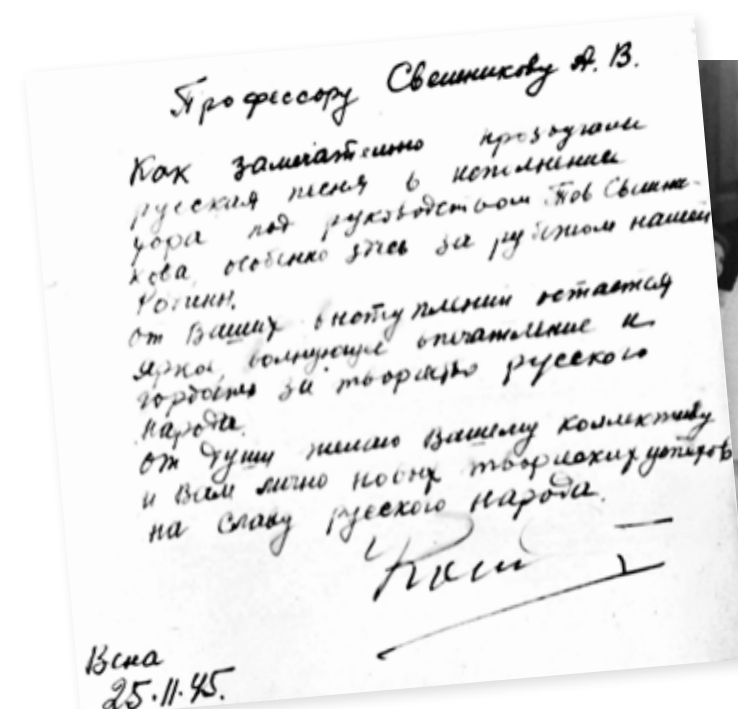 Профессору Свешникову А. В.
Как замечательно прозвучали
русская песня в исполнении
хора под руководством Тов Свешни-
кова, особенно здесь за рубежом нашей
Родины.
От Ваших выступлении остается
яркое, волнующее впечатление и
гордость за творчество русского
народа.
От души желаю Вашему коллективу
и Вам лично новых творческих успехов
на славу русского народа.
Вена
25.11.45.